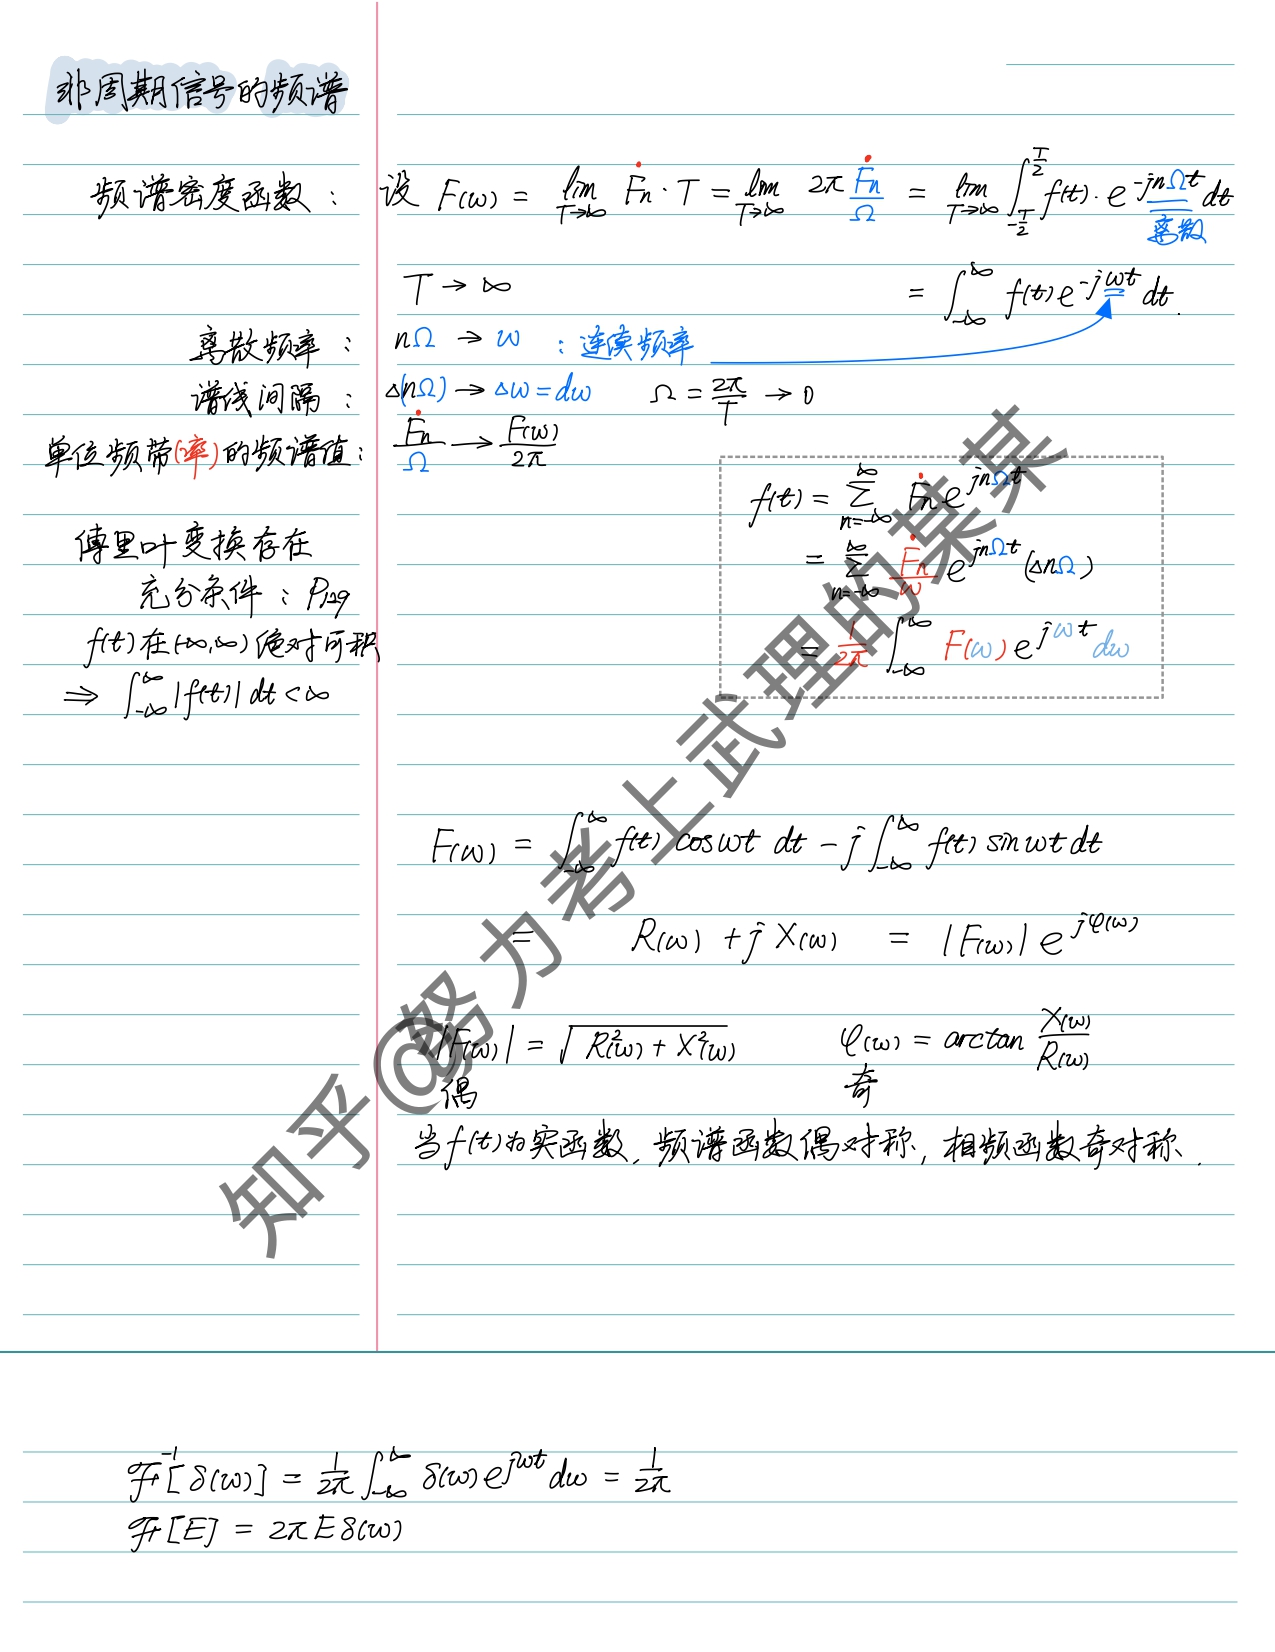 非周期信号的频谱
频谱密度函数： 设 F(ω) = lim_{T→∞} Ḟn·T = lim_{T→∞} 2π Ḟn/Ω = lim_{T→∞} ∫_{-T/2}^{T/2} f(t)·e^{-jnΩt} dt
离散
T → ∞ = ∫_{-∞}^{∞} f(t)e^{-jωt} dt.
离散频率： nΩ → ω ：连续频率
谱线间隔： Δ(nΩ) → Δω = dω Ω = 2π/T → 0
单位频带(率)的频谱值： Ḟn/Ω → F(ω)/2π
f(t) = Σ_{n=-∞}^{∞} Ḟn e^{jnΩt}
= Σ_{n=-∞}^{∞} Ḟn/ω e^{jnΩt} (ΔnΩ)
= 1/2π ∫_{-∞}^{∞} F(ω) e^{jωt} dω
傅里叶变换存在
充分条件：P129
f(t)在(-∞,∞)绝对可积
⇒ ∫_{-∞}^{∞} |f(t)| dt < ∞
F(ω) = ∫_{-∞}^{∞} f(t) cosωt dt - j ∫_{-∞}^{∞} f(t) sinωt dt
= R(ω) + j X(ω) = |F(ω)| e^{jφ(ω)}
|F(ω)| = √(R²(ω) + X²(ω)) φ(ω) = arctan X(ω)/R(ω)
偶 奇
当f(t)为实函数，频谱函数偶对称，相频函数奇对称.
ℱ^{-1}[δ(ω)] = 1/2π ∫_{-∞}^{∞} δ(ω)e^{jωt} dω = 1/2π
ℱ[E] = 2πEδ(ω)
知乎@努力考上武理的某某